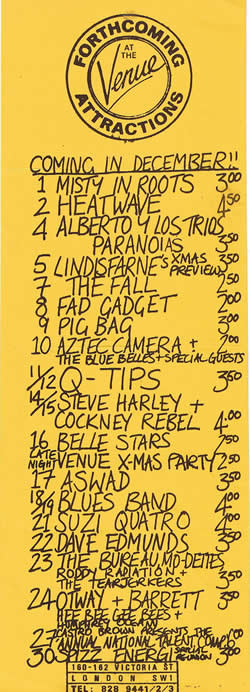 FORTHCOMING
AT THE
Venue
ATTRACTIONS
COMING IN DECEMBER!!
1 MISTY IN ROOTS 3.00
2 HEATWAVE 4.50
4 ALBERTO Y LOS TRIOS
PARANOIAS 3.50
5 LINDISFARNE'S XMAS PREVIEW 3.50
7 THE FALL 2.50
8 FAD GADGET 2.00
9 PIG BAG 3.00
10 AZTEC CAMERA +
THE BLUE BELLES + SPECIAL GUESTS
11/12 Q-TIPS 3.50
14/15 STEVE HARLEY +
COCKNEY REBEL 4.00
16 BELLE STARS 2.50
LATE NIGHT VENUE X-MAS PARTY 2.50
17 ASWAD 3.50
18/19 BLUES BAND 4.00
21 SUZI QUATRO 4.00
22 DAVE EDMUNDS 3.50
23 THE BUREAU MO-DETTES
RODDY RADIATION +
THE TEARJERKERS 3.50
24 OTWAY + BARRETT 3.50
HEE BEE GEE BEES +
HUMPHREY OCEAN
27 CASTRO BROWN PRESENTS THE
ANNUAL NATIONAL TALENT COMP
30 ENERGI SPECIAL REUNION 3.00
160-162 VICTORIA ST
LONDON SW1
TEL: 828 9441/2/3